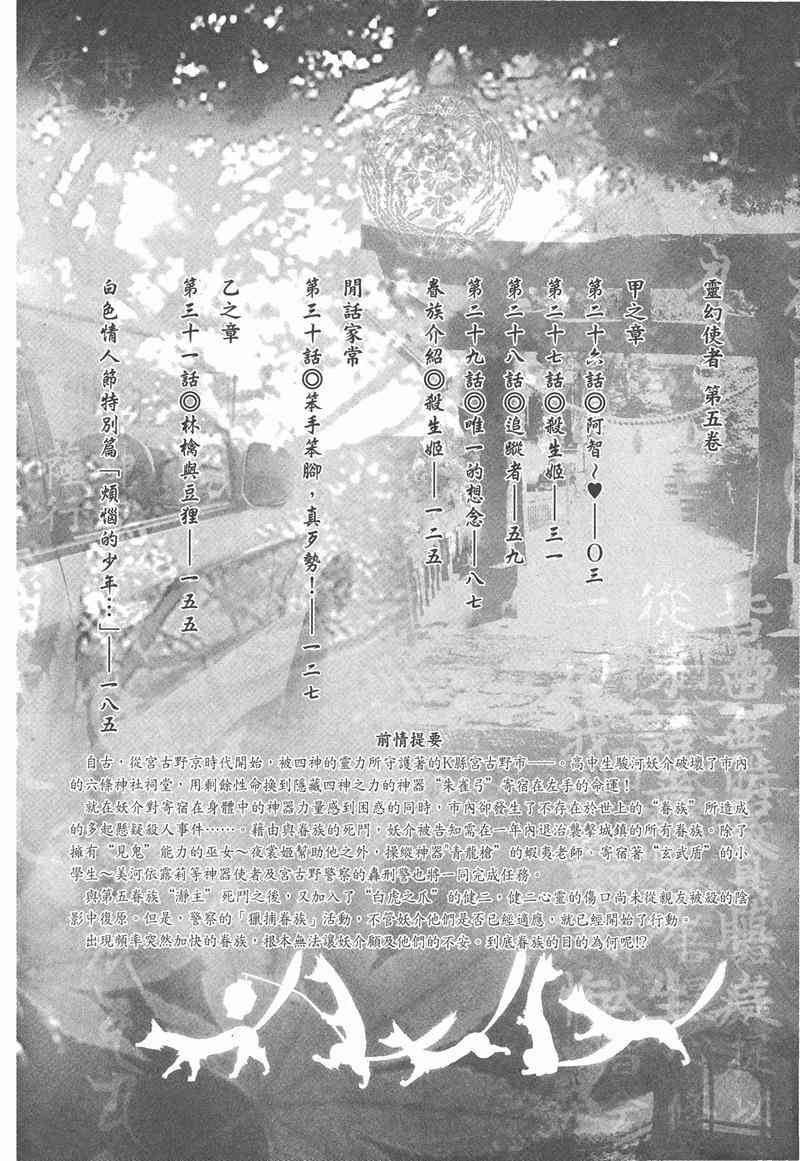 靈幻使者 第五卷
甲之章
第二十六話◎阿智～♥——○三
第二十七話◎殺生姬——三一
第二十八話◎追蹤者——五九
第二十九話◎唯一的想念——八七
眷族介紹◎殺生姬——一二五
閒話家常
第三十話◎笨手笨腳，真歹勢！——一二七
乙之章
第三十一話◎林檎與豆狸——一五五
白色情人節特別篇「煩惱的少年…」——一八五
前情提要
自古，從宮古野京時代開始，被四神的靈力所守護著的K縣宮古野市——。高中生駿河妖介破壞了市內
的六條神社祠堂，用剩餘性命換到隱藏四神之力的神器“朱雀弓”寄宿在左手的命運！
就在妖介對寄宿在身體中的神器力量感到困惑的同時，市內卻發生了不存在於世上的“眷族”所造成
的多起懸疑殺人事件……。藉由與眷族的死鬥，妖介被告知需在一年內退治襲擊城鎮的所有眷族。除了
擁有“見鬼”能力的巫女～夜裳姬幫助他之外，操縱神器“青龍槍”的蝦夷老師、寄宿著“玄武盾”的小
學生～美河依露莉等神器使者及宮古野警察的轟刑警也將一同完成任務。
與第五眷族“瀞主”死鬥之後，又加入了“白虎之爪”的健二，健二心靈的傷口尚未從親友被殺的陰
影中復原。但是，警察的「獵捕眷族」活動，不管妖介他們是否已經適應，就已經開始了行動。
出現頻率突然加快的眷族，根本無法讓妖介顧及他們的不安。到底眷族的目的為何呢!?